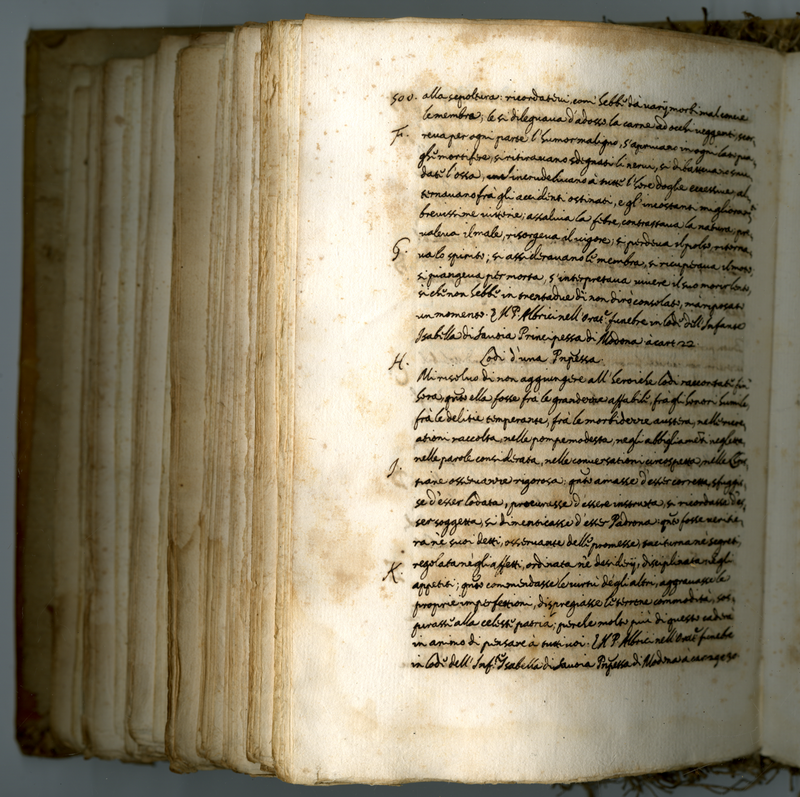 500. alla sepoltura: ricordativi, com' hebbe da varij morbi mal concie
le membra; le si dileguava d'adosso la carne ad occhi veggenti, scor
F. reva per ogni parte l'humor maligno, s'aprivano in ogni lato pia,
ghe mortifere, si ritiravano sdegnati li nervi, si dibattevano snu
date l'ossa, incrudelivano à tutte l'hore doglie eccessive, al
ternavano frà gli accidenti ostinati, e gl'incostanti migliora
brevissime vittorie; assaliva la febre, contrastava la natura, pre
valeva il male, risorgeva il vigore; si perdeva il polso, ritorna
G. va lo spirito; si assideravano le membra, si ricuperava il moto,
si piangeva per morta, s'interpretava vivere il suo morir lento,
si che non hebbe in trentadue dì non dirò consolato, ma riposato
un momento. Il P. Albrici nell'Orat.e funebre in lode dell'Infante
Isabella di Savoia Principessa di Modona à cart. 22.
H. Lodi d'una Prñpessa.
Mi risolvo di non aggiungere all'heroiche lodi raccontate fin
hora, quanto ella fosse fra le grandezze affabile, frà gli honori humile,
frà le delitie temperante, frà le morbidezze austera, nelle ricre,
ationi raccolta, nelle pompe modesta, negli abbigliamenti negletta,
nelle parole considerata, nelle conversationi circospetta, nelle Cris
I. tiane osservanze rigorosa: quanto amasse d'esser corretta, sfuggis
se d'esser lodata, procurasse d'essere instrutta, si ricordasse d'es,
ser soggetta, si dimenticasse d'esser Padrona: quanto fosse verite,
ra ne' suoi detti, osservante delle promesse, taciturna ne' segreti,
regolata negli affetti, ordinata ne' desiderij, disciplinata negli
K. appetiti; quanto comendasse le virtù degli altri, aggravasse le
proprie imperfettioni, dispregiasse le terrene commodità, sos
pirasse alla celeste patria; perche molto più di questo caderà
in animo di pensare à tutti voi. Il P. Albrici nell'Orat.e funebre
in lode dell'Inf.e Isabella di Savoia Prñpessa di Modona a car. 30